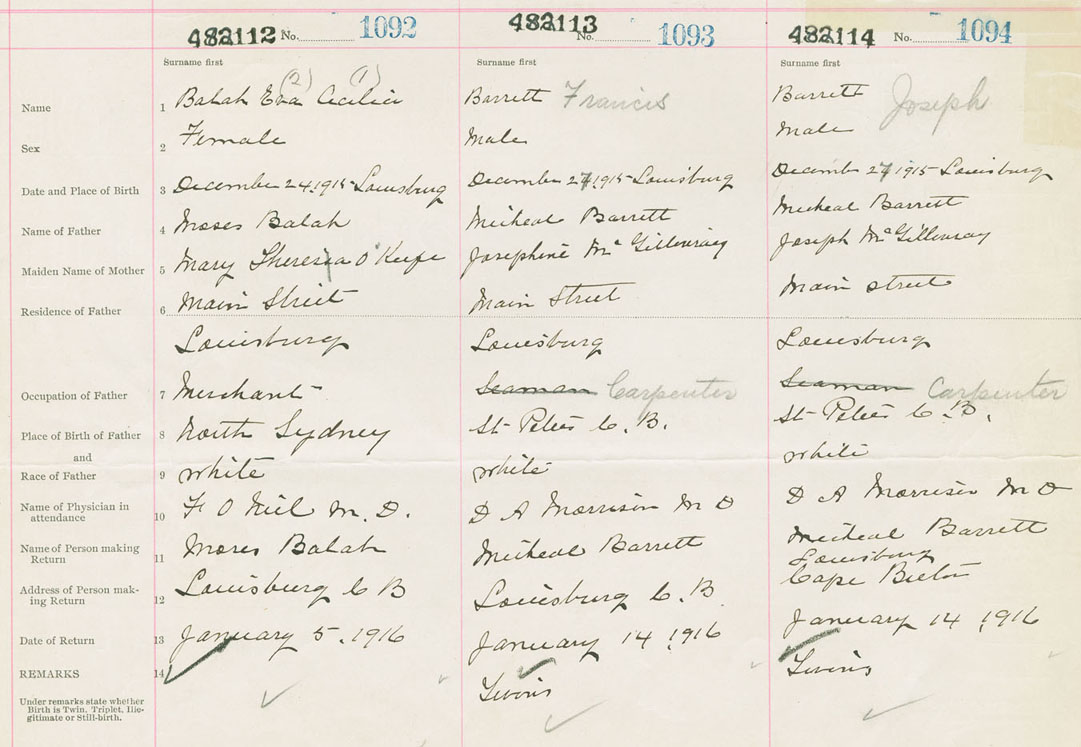 482112 No. 1092 482113 No. 1093 482114 No. 1094
Surname first Surname first Surname first
(2) (1)
Name 1 Balah Eva Cecilia Barrett Francis Barrett Joseph
Sex 2 Female Male Male
Date and Place of Birth 3 December 24, 1915 - Louisburg December 27 1915 - Louisburg December 27 1915 - Louisburg
Name of Father 4 Moses Balah Micheal Barrett Micheal Barrett
Maiden Name of Mother 5 Mary Theresia O'Keefe Josephine McGillivray Joseph McGillivray
Residence of Father 6 Main Street Main Street Main Street
Louisburg Louisburg Louisburg
Occupation of Father 7 Merchant Seaman Carpenter Seaman Carpenter
Place of Birth of Father 8 North Sydney St Peters C. B. St Peters C. B.
and
Race of Father 9 White White White
Name of Physician in
attendance 10 F O Neil M. D. D A Morrison M D D A Morrison M D
Name of Person making
Return 11 Moses Balah Micheal Barrett Micheal Barrett
Address of Person mak-
ing Return 12 Louisburg C B Louisburg C. B. Louisburg
Cape Breton
Date of Return 13 January 5, 1916 January 14, 1916 January 14, 1916
REMARKS 14 Twins Twins
Under remarks state whether
Birth is Twin, Triplet, Ille-
gitimate or Still-birth.